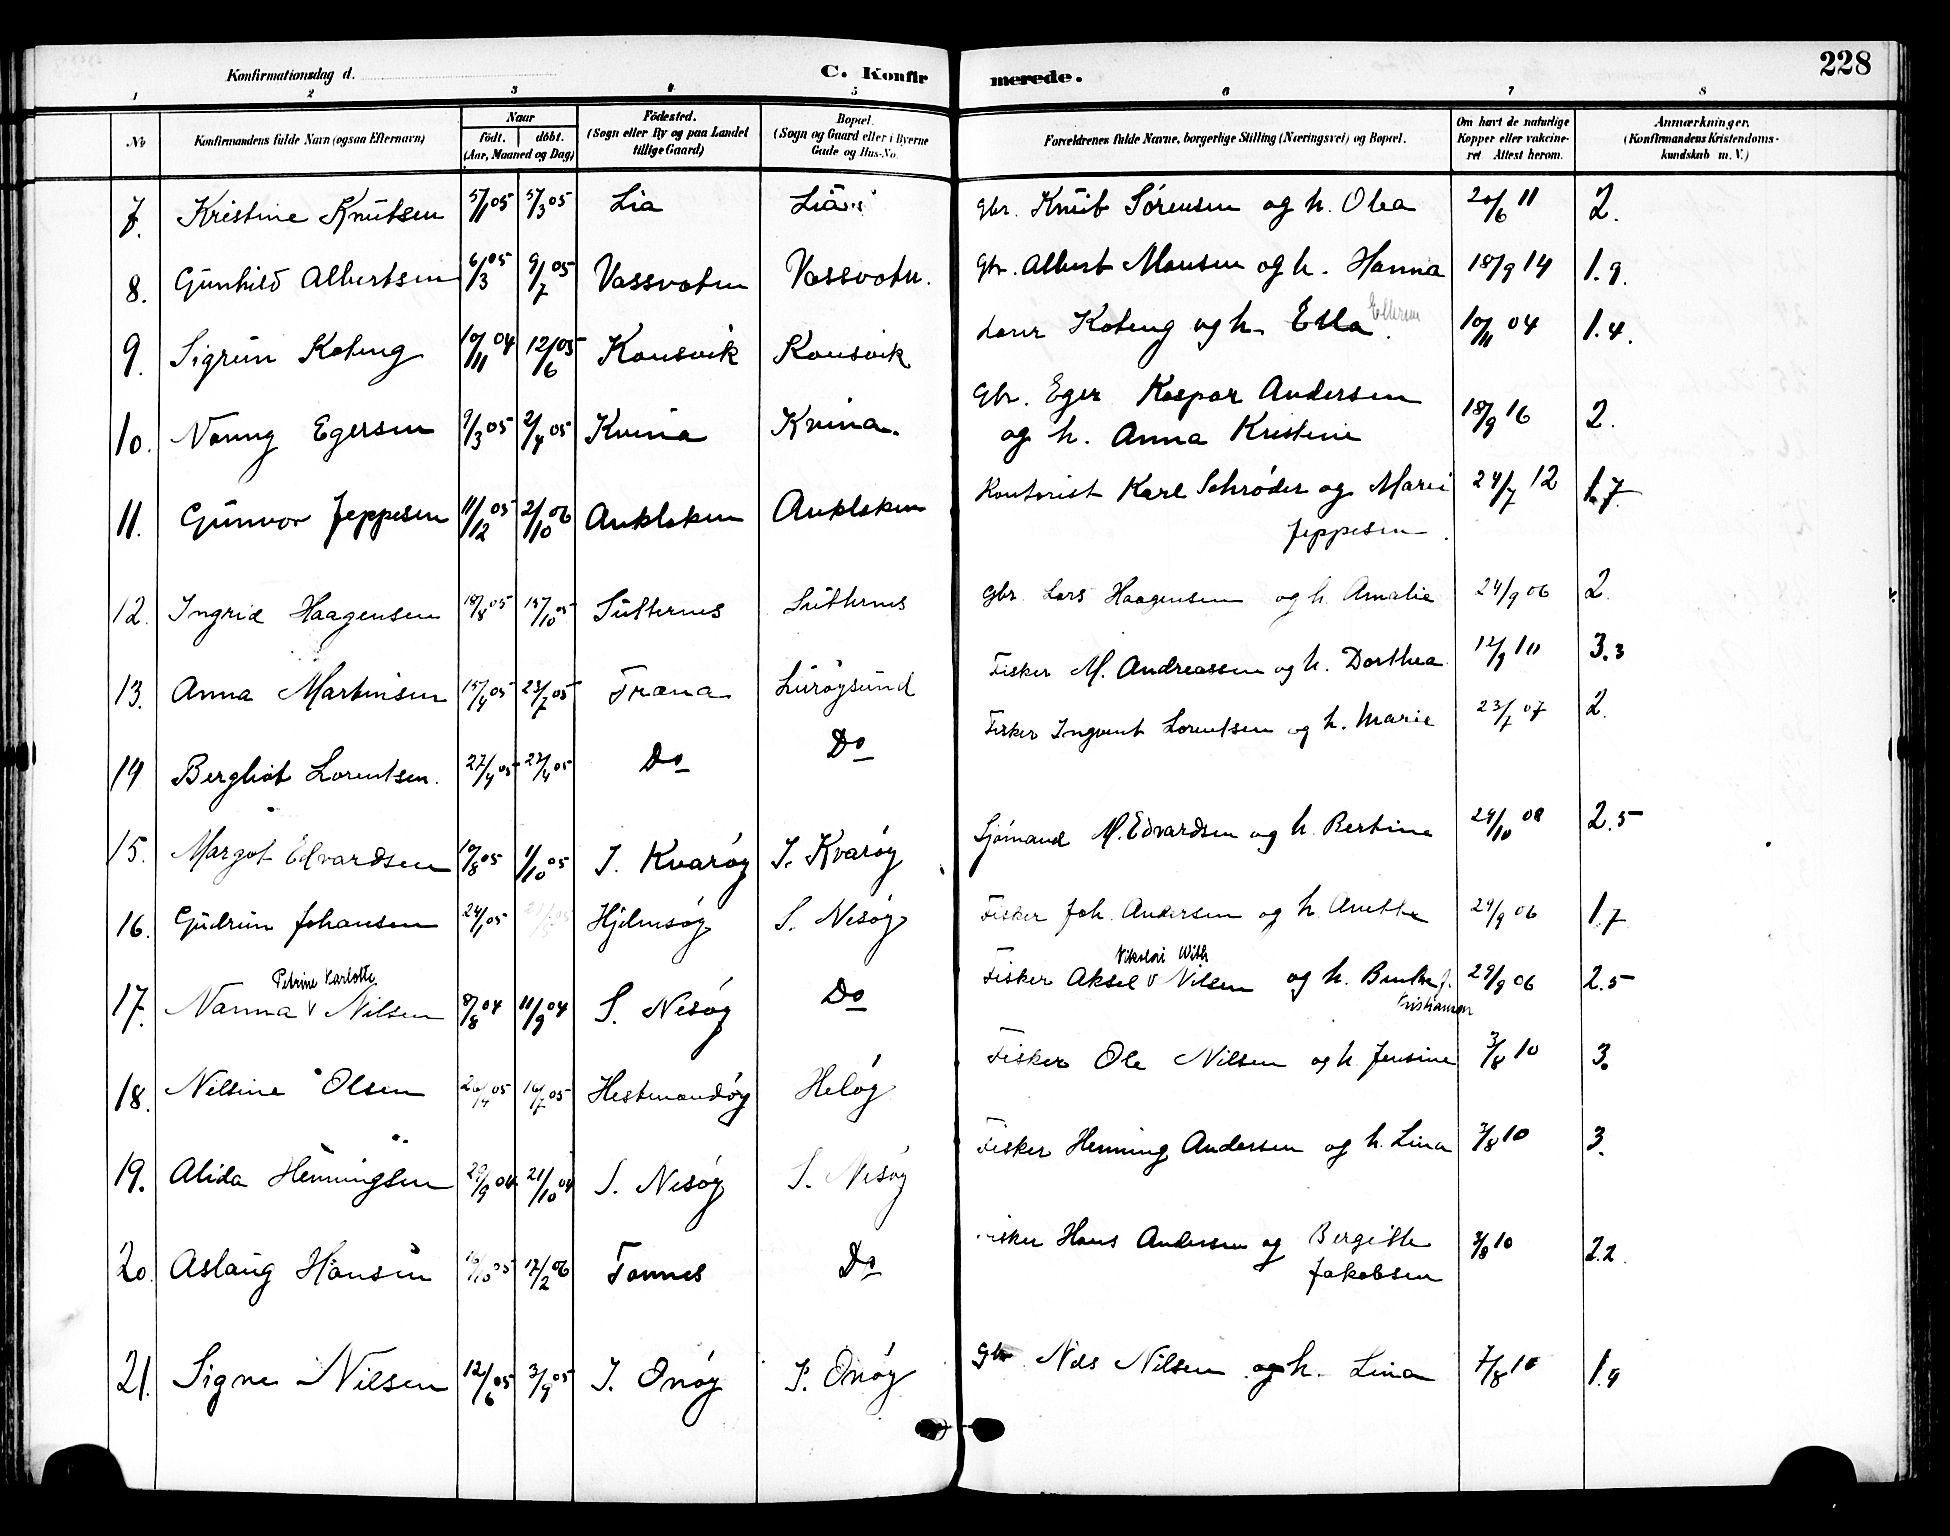 Konfirmationsdag d.
C. Konfirmerede.
228
1 2 3 4 5 6 7 8
No
Konfirmandens fulde Navn (ogsaa Efternavn)
Naar
födt. döbt.
(Aar, Maaned og Dag)
Födested.
(Sogn eller By og paa Landet
tillige Gaard)
Bopæl.
(Sogn og Gaard eller i Byerne
Gade og Hus-No.
Forældrenes fulde Navne, borgerlige Stilling (Næringsvei) og Bopæl.
Om havt de naturlige
Kopper eller vakcine-
ret Attest herom.
Anmærkninger.
(Konfirmandens Kristendoms-
kundskab m. V.)
7. Kristine Knutsen 5/1 05 5/3 05 Lia Lia Gbr. Knut Sörensen og h. Olea 20/6 11 2.
8. Gunhild Albertsen 6/3 05 9/7 05 Vassvatn Vassvatn. Gbr. Albert Monsen og h. Hanna 18/9 14 1.9.
9. Sigrun Koteng 10/11 04 12/6 05 Konsvik Konsvik Koteng og h. Ella 10/11 04 1.4.
10. Nanny Egersen 9/3 05 2/4 05 Kvina Kvina. Gbr. Eger Kaspar Andersen
og h. Anna Kristine 18/9 16 2.
11. Gunvor Jeppesen 11/12 05 2/10 06 Auklaken Auklaken Kontorist Karl Schrøder og Marie
Jeppesen 24/7 12 1.7
12. Ingrid Haagensen 18/8 05 15/10 05 Sutternes Sutternes Gbr Lars Haagensen og h. Amalie 24/9 06 2.
13. Anna Martinsen 15/4 05 23/7 05 Træna Luröysund Fisker M. Andreassen og h. Dorthea 12/9 10 3.3
14 Bergliot Lorentsen. 27/4 05 23/4 05 Do Do Fisker Ingvart Lorentsen og h. Marie 23/7 07 2.
15. Margot Edvardsen 10/8 05 1/10 05 I. Kvaröy I. Kvaröy Sjömand M. Edvardsen og h. Bertine 24/10 08 2.5
16. Gudrun Johansen 24/1 05 Hjelmsöy S. Nesöy Fisker Joh. Andersen og h. Anette 24/9 06 1.7
Petrine Karlotte
Nikolai With
17. Nanna v Nilsen 8/8 04 11/9 04 S. Nesöy Do Fisker Aksel v Nilsen og h. 29/9 06 2.5
Kristiansen
18. Nilsine Olsen 26/4 05 16/7 05 Hestmandöy Helöy Fisker Ole Nilsen og h. Jensine 3/8 10 3.
19. Alida Henningsen 29/9 04 21/10 04 S. Nesöy S. Nesöy Fisker Henning Andersen og h. Lina 7/8 10 3.
20. Aslaug Hansen 10/10 05 17/2 06 Tonnes Do Fisker Hans Andersen og Bergitte
Jakobsen 3/8 10 2.2.
21. Signe Nilsen 12/6 05 3/9 05 I. Onöy I. Onöy Gbr. Nils Nilsen og h. Lina 7/8 10 1.9